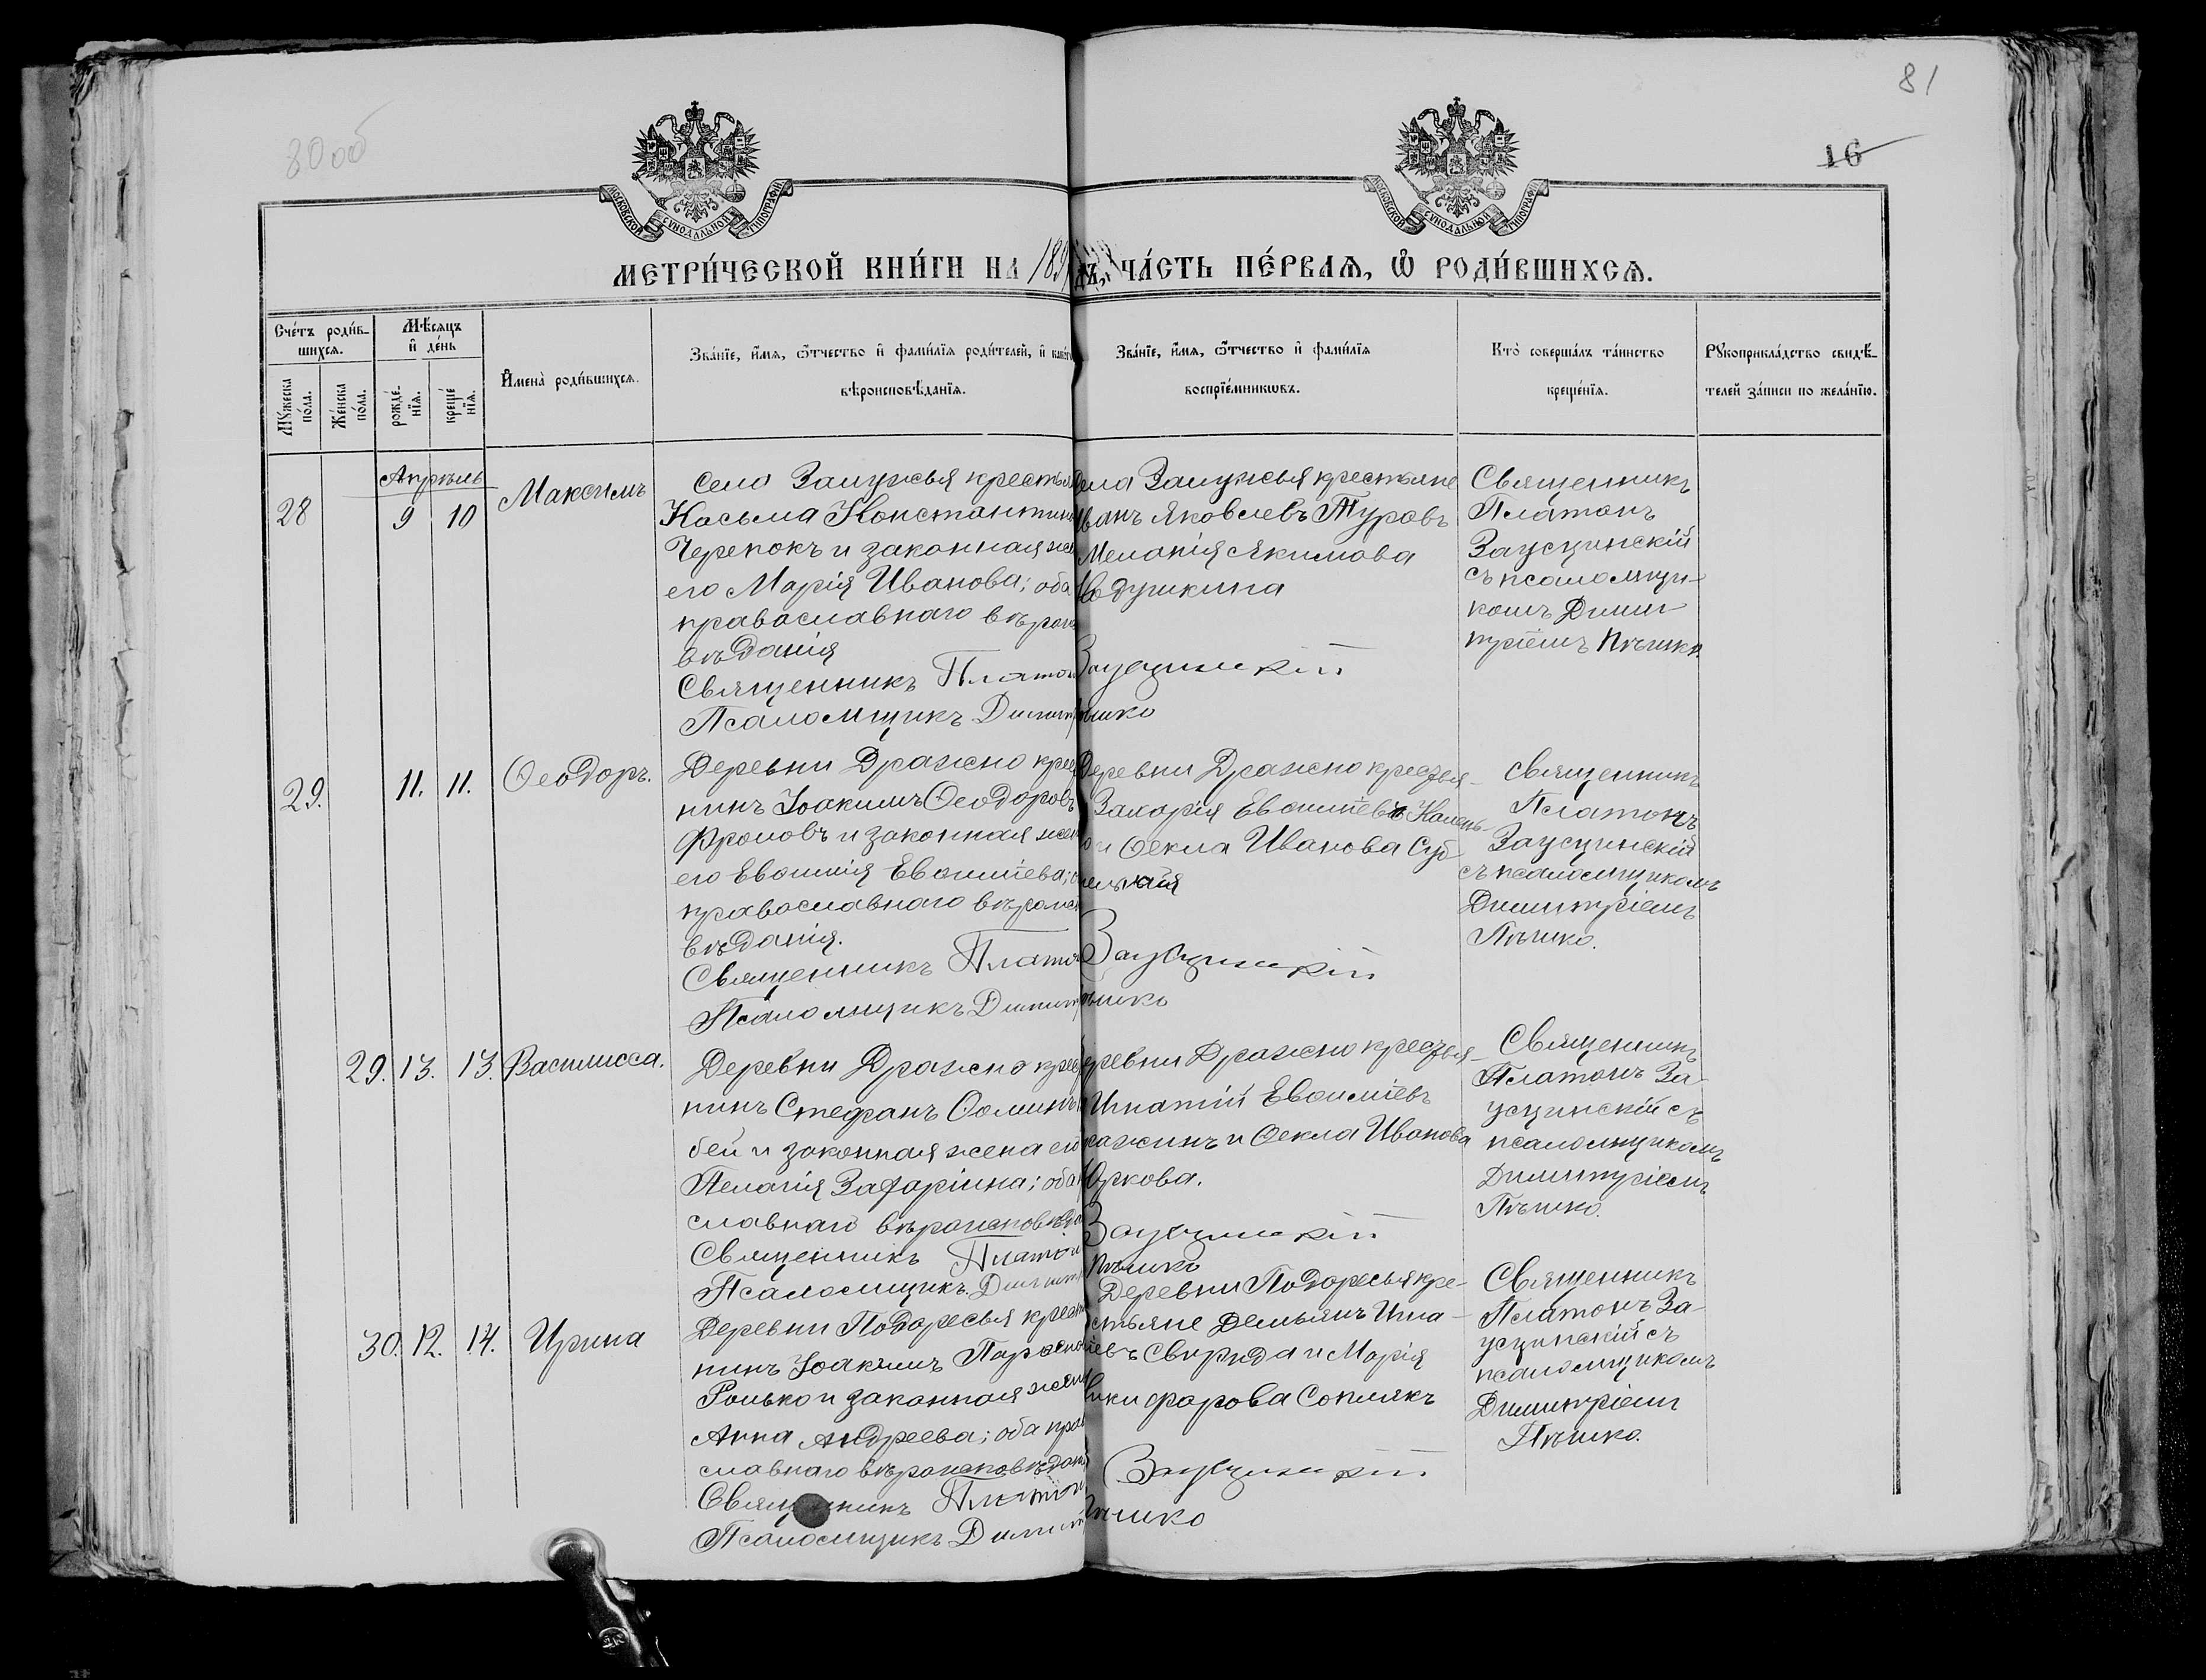 80об
81
16
МОСКОВСКОЙ СѴНОДАЛЬНОЙ ТИПОГРАФІИ
МОСКОВСКОЙ СѴНОДАЛЬНОЙ ТИПОГРАФІИ
МЕТРИ́ЧЕСКОЙ КНИ́ГИ НА 189
ЧА́СТЬ ПЕ́РВАѦ, Ѽ РОДИ́ВШИХСѦ.
Сче́тъ роди́вшихсѧ.
Мꙋ́жеска по́ла.
Же́нска по́ла.
Мѣ́сѧцъ и҆ де́нь
рожде́нїѧ.
креще́нїѧ.
И҆мена̀ роди́вшихсѧ.
Зва́нїе, и҆́мѧ, ѻ҆́тчество и҆ фами́лїѧ роди́телей, и҆ како́гѡ
вѣроисповѣ́данїѧ.
Зва́нїе, и҆́мѧ, ѻ҆́тчество и҆ фами́лїѧ
воспрїе́мникѡвъ.
Кто̀ соверша́лъ та́инство
креще́нїѧ.
Рꙋкоприкла́дство свидѣ́-
телей за́писи по жела́нїю.
28
Апрѣль
9 10
Максимъ
Села Залужья крестья
Косьма Константинов
Черепокъ и законная же
его Марія Иванова; оба
православнаго вѣроис
вѣданія
Священникъ Платон Заусцинскій
Псаломщикъ Димит Пѣшко
Села Залужья крестьяне
Иванъ Яковлевъ Туровъ
Меланія Якимова
Авдушкина
Священникъ
Платонъ
Заусцинскій
съ псаломщи-
комъ Дими
тріемъ Пѣшко.
29.
11. 11.
Ѳеодоръ.
Деревни Дражно крес
нинъ Іоакимъ Ѳеодоровъ
Фроловъ и законная жен
его Евфимія Евфиміева;
православнаго вѣроис
вѣданія.
Священникъ Платон Заусцинскій
Псаломщикъ Димит Пѣшко
Деревни Дражно крестья-
Захарія Евфиміевъ
и Ѳекла Иванова
Священникъ
Платонъ
Заусцинскій
съ псаломщикомъ
Димитріемъ
Пѣшко.
29. 13. 13.
Василисса.
Деревни Дражно крес
нинъ Стефанъ Ѳоминъ
бей и законная жена его
Пелагія Захаріина; оба
славнаго вѣроисповѣда
Священникъ Платон Заусцинскій
Псаломщикъ Димит Пѣшко
Деревни Дражно крестья-
Игнатій Евфиміевъ
и Ѳекла Иванова
Юркова.
Священникъ
Платонъ За-
усцинскій съ
псаломщикомъ
Димитріемъ
Пѣшко.
30. 12. 14.
Ирина
Деревни Подоресья крест
нинъ Іоакимъ Парѳено
Ролько и законная жена
Анна Андреева; оба пра
славнаго вѣроисповѣдан
Священникъ Платон Заусцинскій
Псаломщикъ Димит Пѣшко
Деревни Подоресья кре-
стьяне Демьянъ Игна-
іевъ Свирида и Марія
Никифорова Соплякъ
Священникъ
Платонъ За-
усцинскій съ
псаломщикомъ
Димитріемъ
Пѣшко.